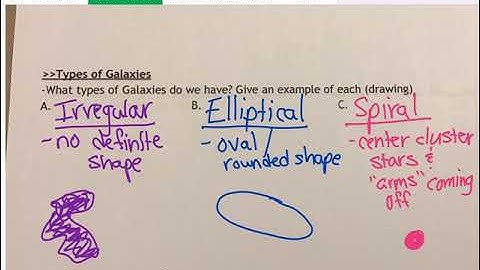 >>Types of Galaxies
-What types of Galaxies do we have? Give an example of each (drawing)
A. Irregular
- no definite
shape
B. Elliptical
- oval /
rounded shape
C. Spiral
- center cluster
stars &
"arms" coming
off